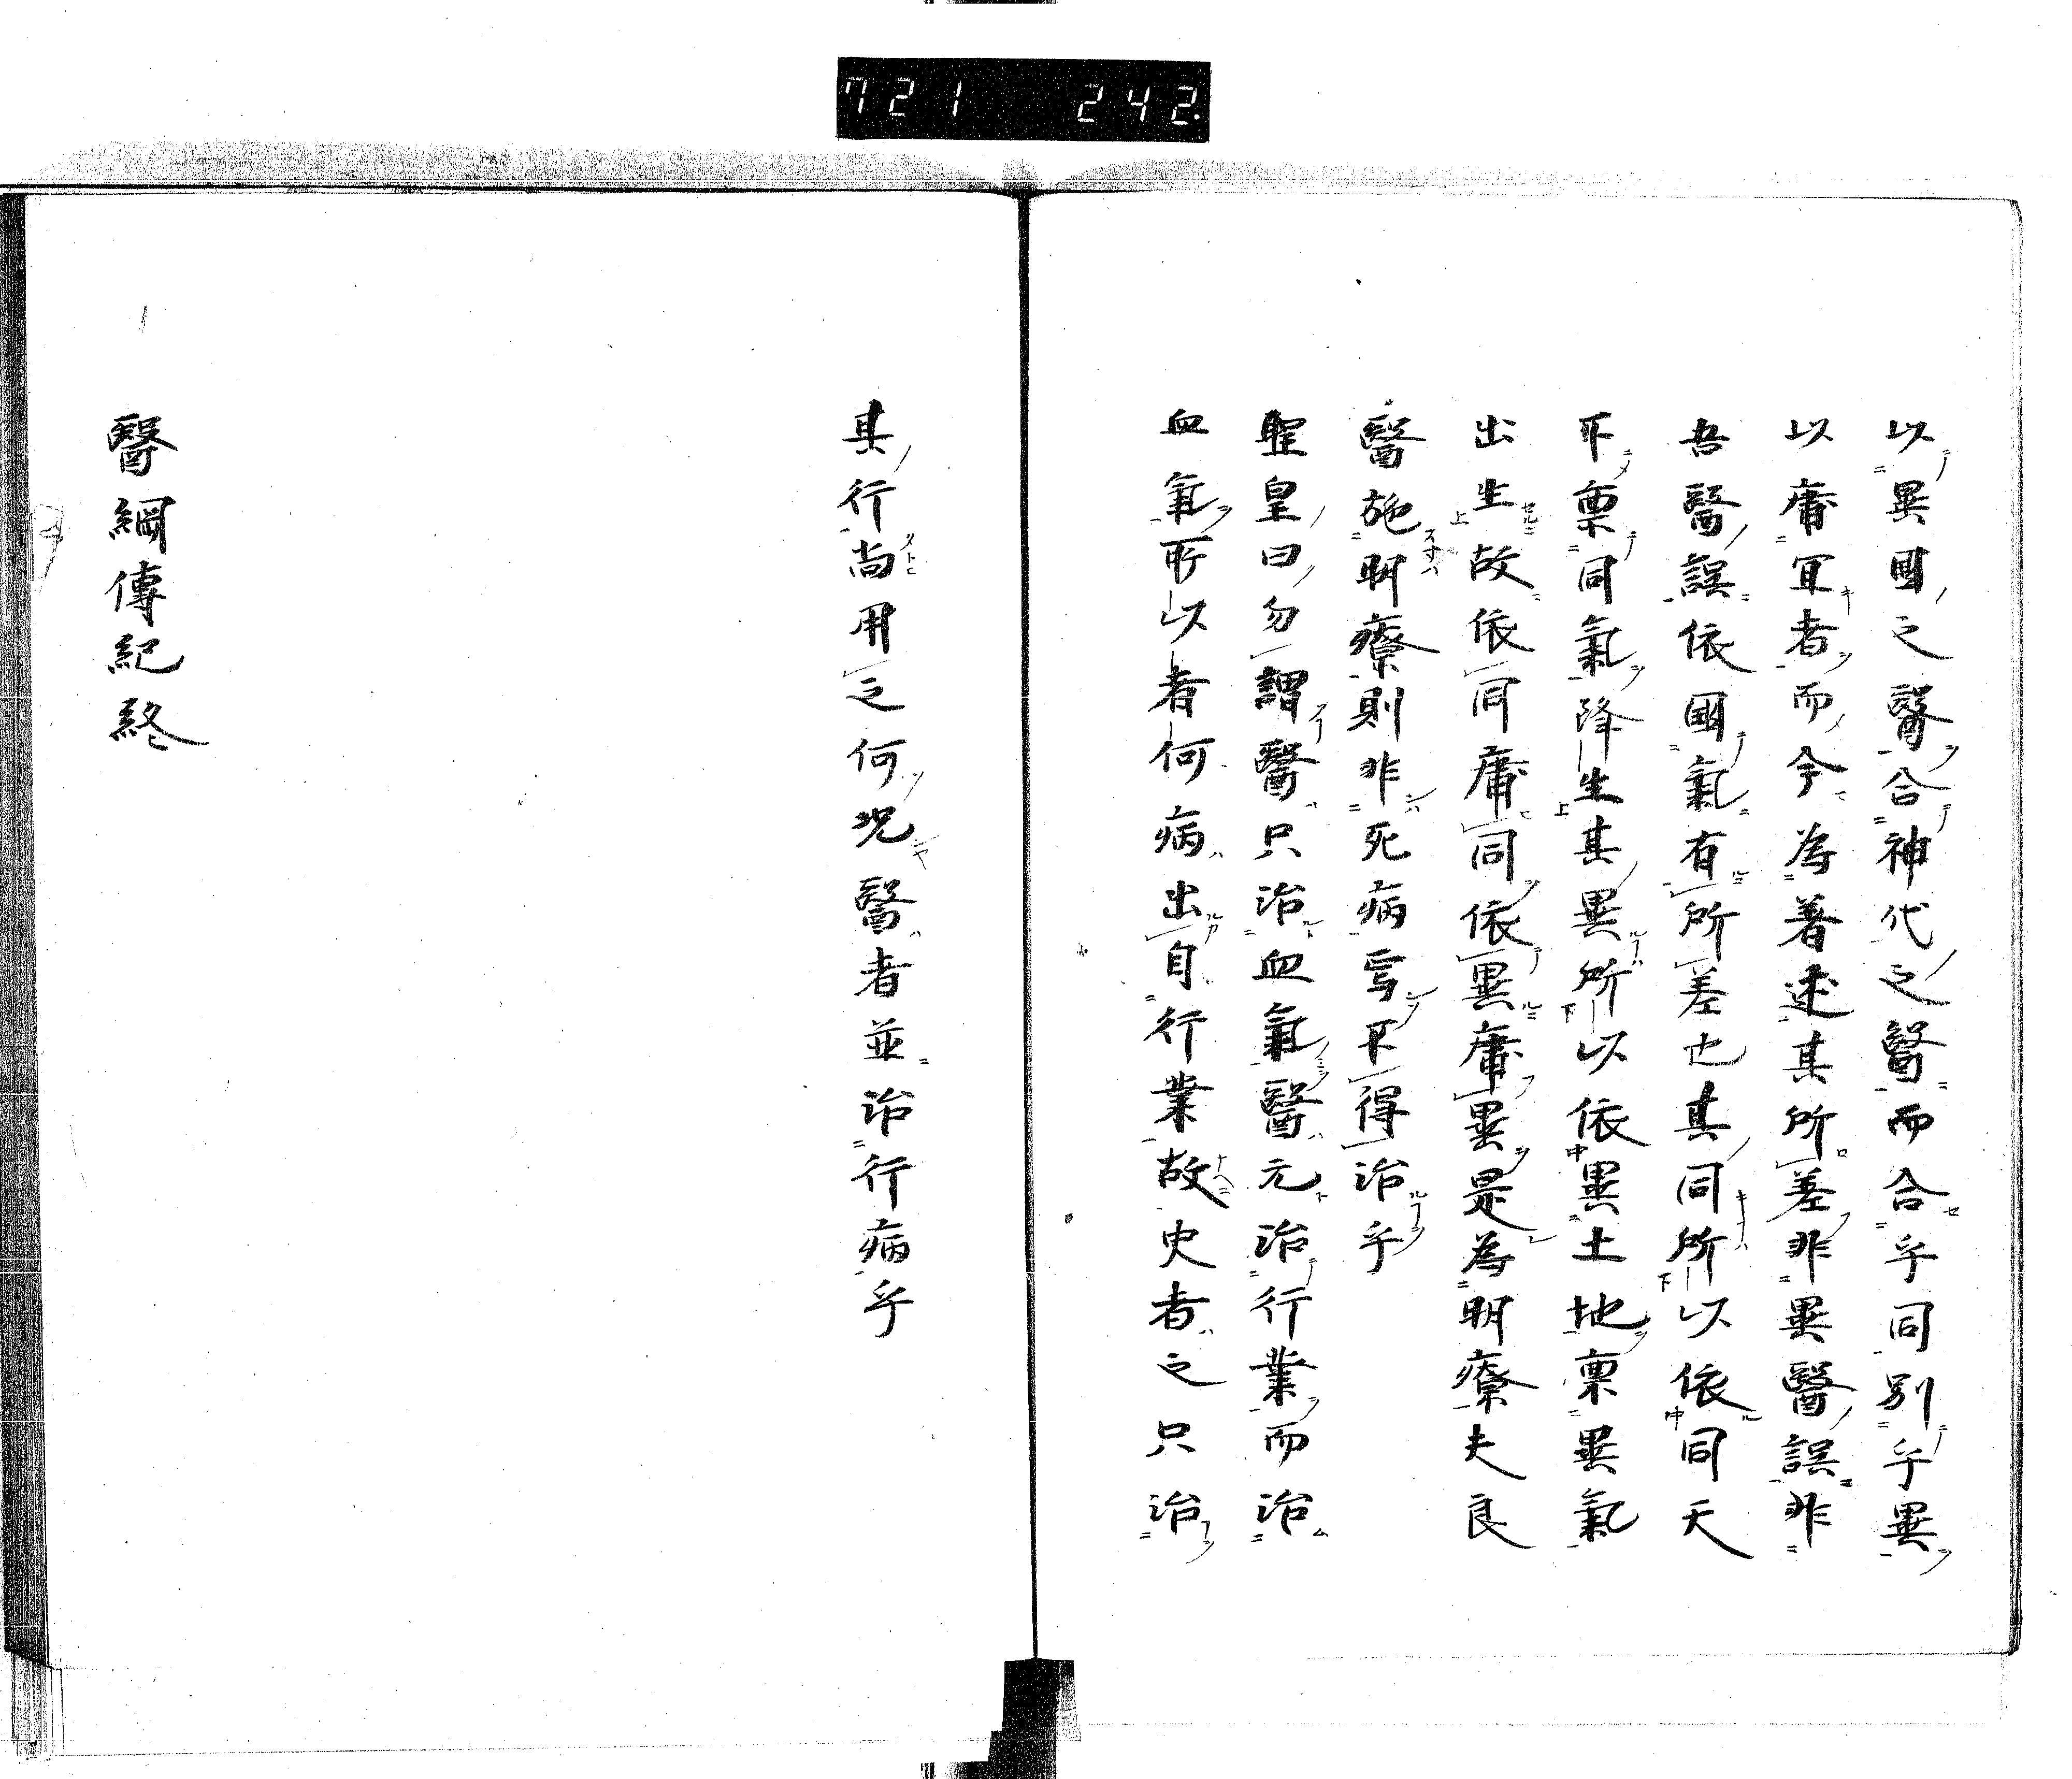 721 242.
以異國之醫合神代之醫而合乎同別乎異
以庸冝者而今為著述其所差非異醫誤非
吾醫誤依國氣有所差也其同所以依同天
下禀同氣降生其異所以依異土地禀異氣
出生故依同庸同依異庸異是為明療夫良
醫施明療則非死病焉不得治乎
聖皇曰勿謂醫只治血氣醫元治行業而治
血氣所以者何病出自行業故史者之只治
其行尚用之何況醫者並治行病乎
醫綱傳紀終